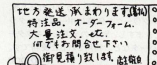 地方発送承わります(有料)
特注品．オーダーフォーム．
大量注文．etc．
何でもお問合せ下さい
御見積り致します．